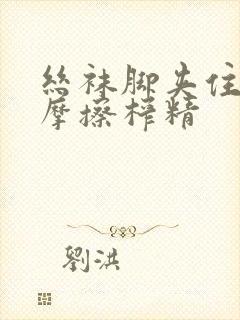 絲袜脚夹住
摩擦榨精
劉洪